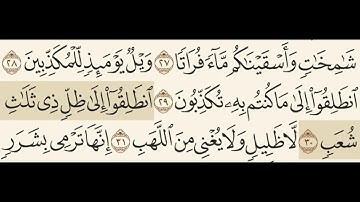 شَٰمِخَٰتٖ وَأَسۡقَيۡنَٰكُم مَّآءٗ فُرَاتٗا ٢٧ وَيۡلٞ يَوۡمَئِذٖ لِّلۡمُكَذِّبِينَ ٢٨
ٱنطَلِقُوٓاْ إِلَىٰ مَا كُنتُم بِهِۦ تُكَذِّبُونَ ٢٩ ٱنطَلِقُوٓاْ إِلَىٰ ظِلّٖ ذِي ثَلَٰثِ
شُعَبٖ ٣٠ لَّا ظَلِيلٖ وَلَا يُغۡنِي مِنَ ٱللَّهَبِ ٣١ إِنَّهَا تَرۡمِي بِشَرَرٖ